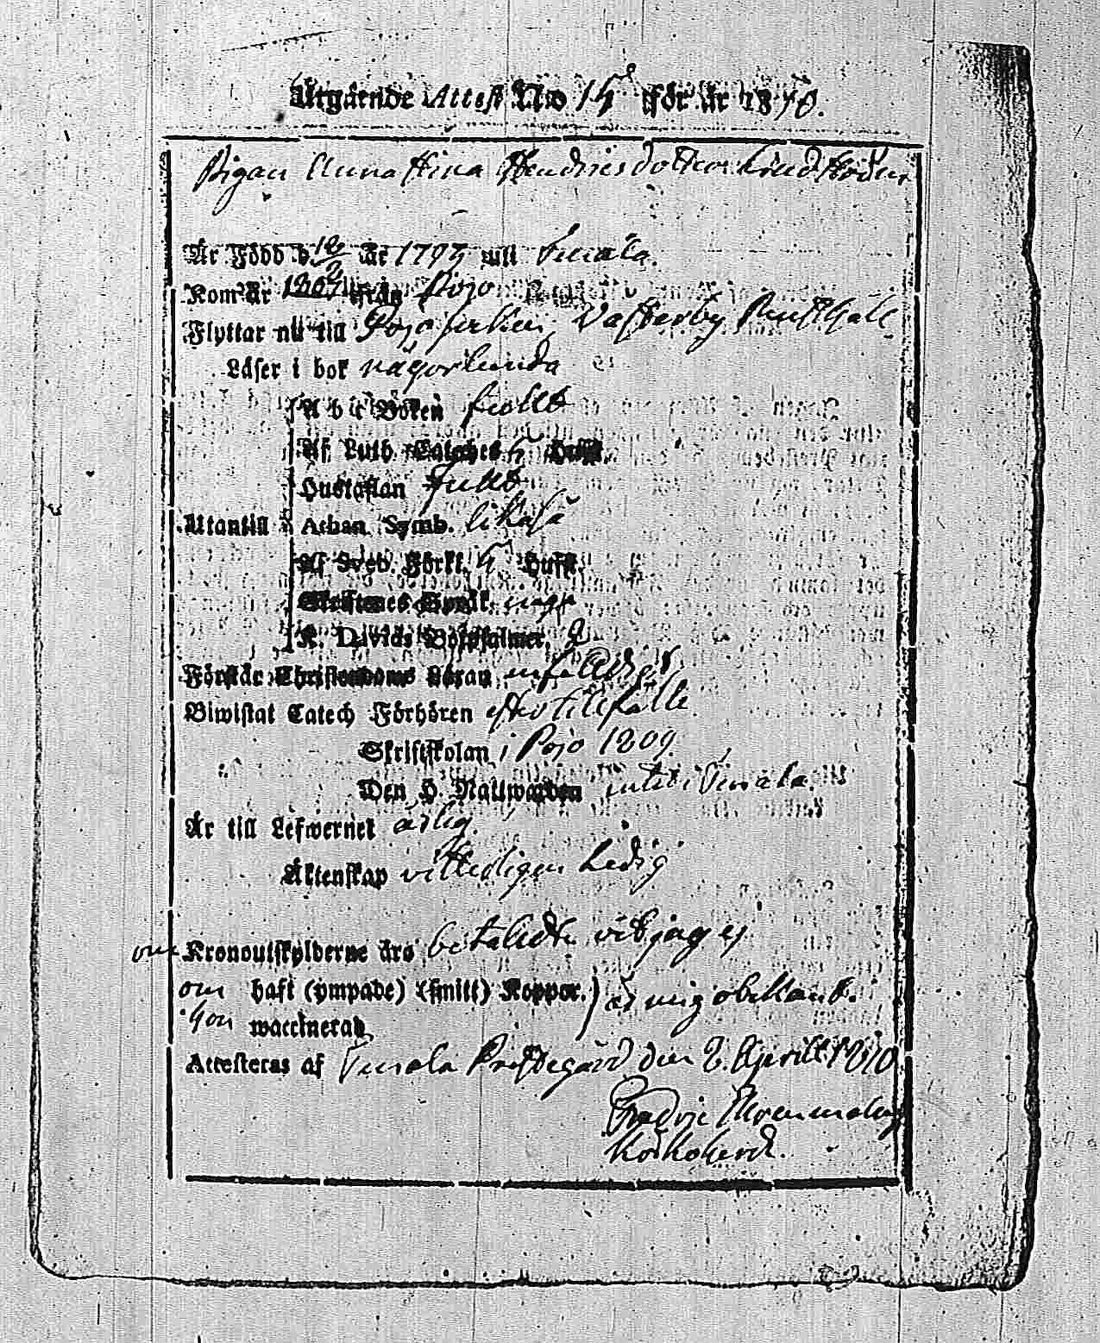 Utgående Attest No 15 för år 1810.
Pigan Anna Stina Hendricsdotter Lindström
Är Född d. 18/2 år 1795 uti Tenala.
Kom år 1807 ifrån Pojo
Flyttar nu till Pojo socken, Västerby Rusthåll
Läser i bok någorlunda
A b c Boken fullt
Af Luth Cateches 5 Hufst.
Hustaflan fullt
Utantill Athan Symb. likaså
Af Sveb. Förkl. 5 Hufst.
Skriftenes Språk. inge
K. Davids Botpsalmer 2
Förstår Christendoms Läran enfalldigt
Biwistat Catech Förhören efter tillfälle
Skriftskolan i Pojo 1809.
Den H. Nattwarden i Tenala.
Är till Lefwernet ärlig.
Äktenskap vitterligen Ledig
om Kronoutskylderne äro betalede vet jag ej
om haft (ympade) (smitt) Koppor.) är mig obekant.
hon waccinerad
Attesteras af Tenala Prestegård den 8. Aprill 1810
Fredric Ehrenmalm
Kyrkoherde.